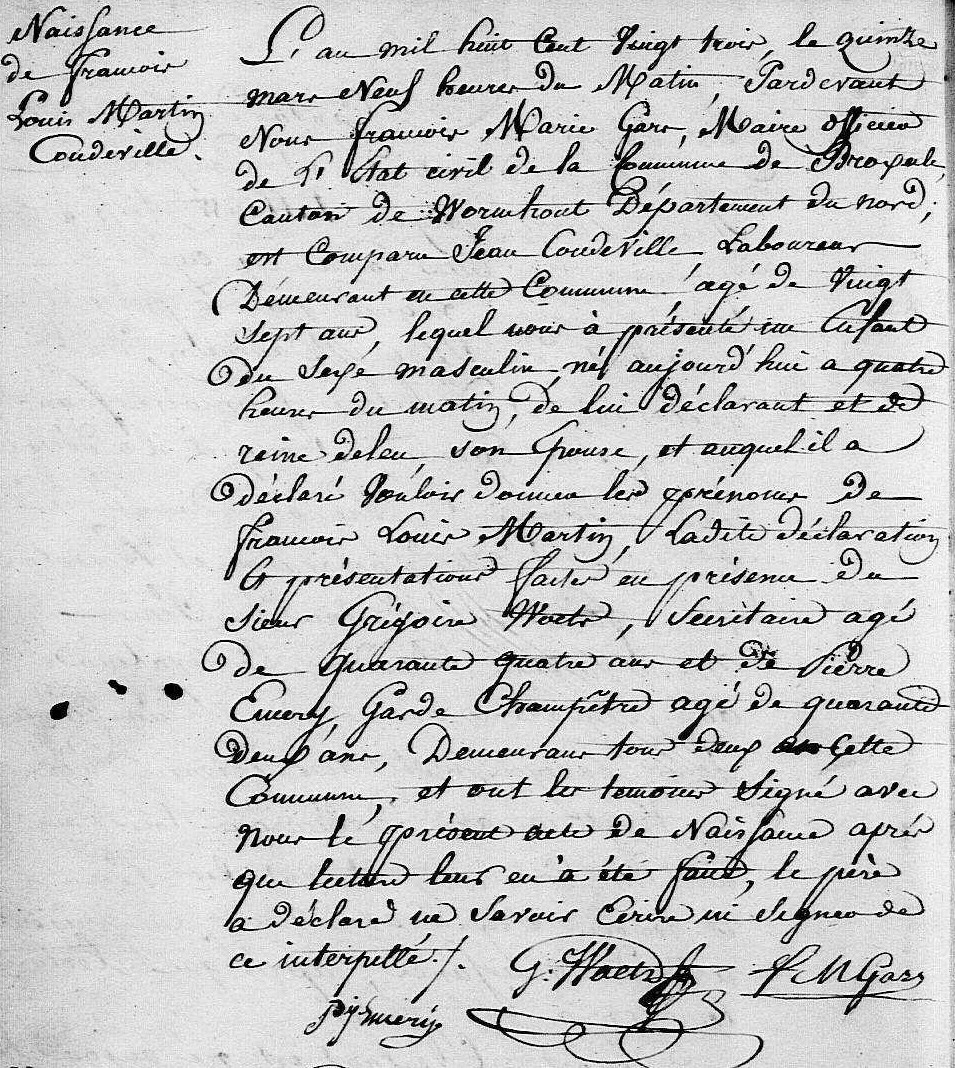 Naissance
de francois
Louis Martin
Coudeville.
L'an mil huit Cent Vingt trois, le quinze
mars Neuf heures du Matin, Pardevant
Nous francois Marie Gars, Maire officier
de L'Etat civil de la Commune de Broxeele,
Canton de Wormhout Département du nord,
est Comparu Jean Coudeville Laboureur
Demeurant en cette Commune agé de Vingt
Sept ans, lequel nous à présenté un Enfant
du Sexe masculin, né aujourd'hui a quatre
heures du matin, de lui déclarant et de
reine deleu, son Epouse, et auquel il a
déclaré Vouloir donner les prénoms de
francois Louis Martin, Ladite déclaration
Et présentations faites en présence du
Sieur Grégoire Woets, Secrétaire agé
de quarante quatre ans et de Pierre
Emery, Garde Champêtre agé de quarante
deux ans, Demeurans tous deux en Cette
Commune, et ont les temoins Signé avec
nous le présent acte de Naissance aprés
que lecture leur en à été faite, le père
a déclaré ne Savoir Ecrire ni Signer de
ce interpellé./.
G. Woets
f M Gars
PJ Emery